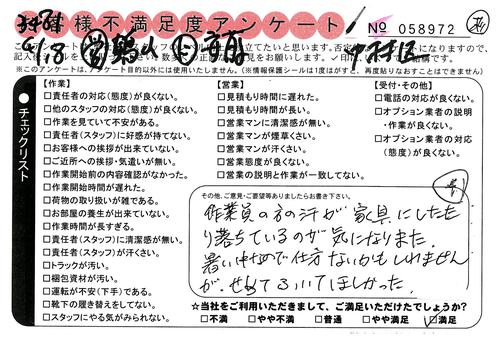 お客様不満足度アンケート
№ 058972
6/18
中村区
(※このアンケートは、アンケート目的以外には使用いたしません。(※情報保護シールは1度はがすと、再度貼りなおすことはできません)
●チェックリスト
【作業】
□責任者の対応(態度)が良くない。
□他のスタッフの対応(態度)が良くない。
□作業を見ていて不安がある。
□責任者(スタッフ)に好感が持てない。
□お客様への挨拶が出来ていない。
□ご近所への挨拶・気遣いが無い。
□作業開始前の内容確認がなかった。
□作業開始時間が遅れた。
□荷物の取り扱いが雑である。
□お部屋の養生が出来ていない。
□作業時間が長すぎる。
□責任者(スタッフ)に清潔感が無い。
□責任者(スタッフ)が汗くさい。
□トラックが汚い。
□梱包資材が汚い。
□運転が不安(下手)である。
□靴下の履き替えをしてない。
□スタッフにやる気がみられない。
【営業】
□見積もり時間に遅れた。
□見積もり時間が長い。
□営業マンに清潔感が無い。
□営業マンが煙草くさい。
□営業マンが汗くさい。
□営業態度が良くない。
□営業の説明と作業が一致してない。
【受付・その他】
□電話の対応が良くない。
□オプション業者の説明
・作業が良くない。
□オプション業者の対応
(態度)が良くない。
その他、ご意見・ご要望等ありましたらお書き下さい。
作業員の方の汗が家具にしたた
り落ちているのが気になりました。
暑い中なので仕方ないかもしれません
が、せめてふいてほしかった。
☆当社をご利用いただきまして、ご満足いただけたでしょうか?
□不満 □やや不満 □普通 □やや満足 □満足